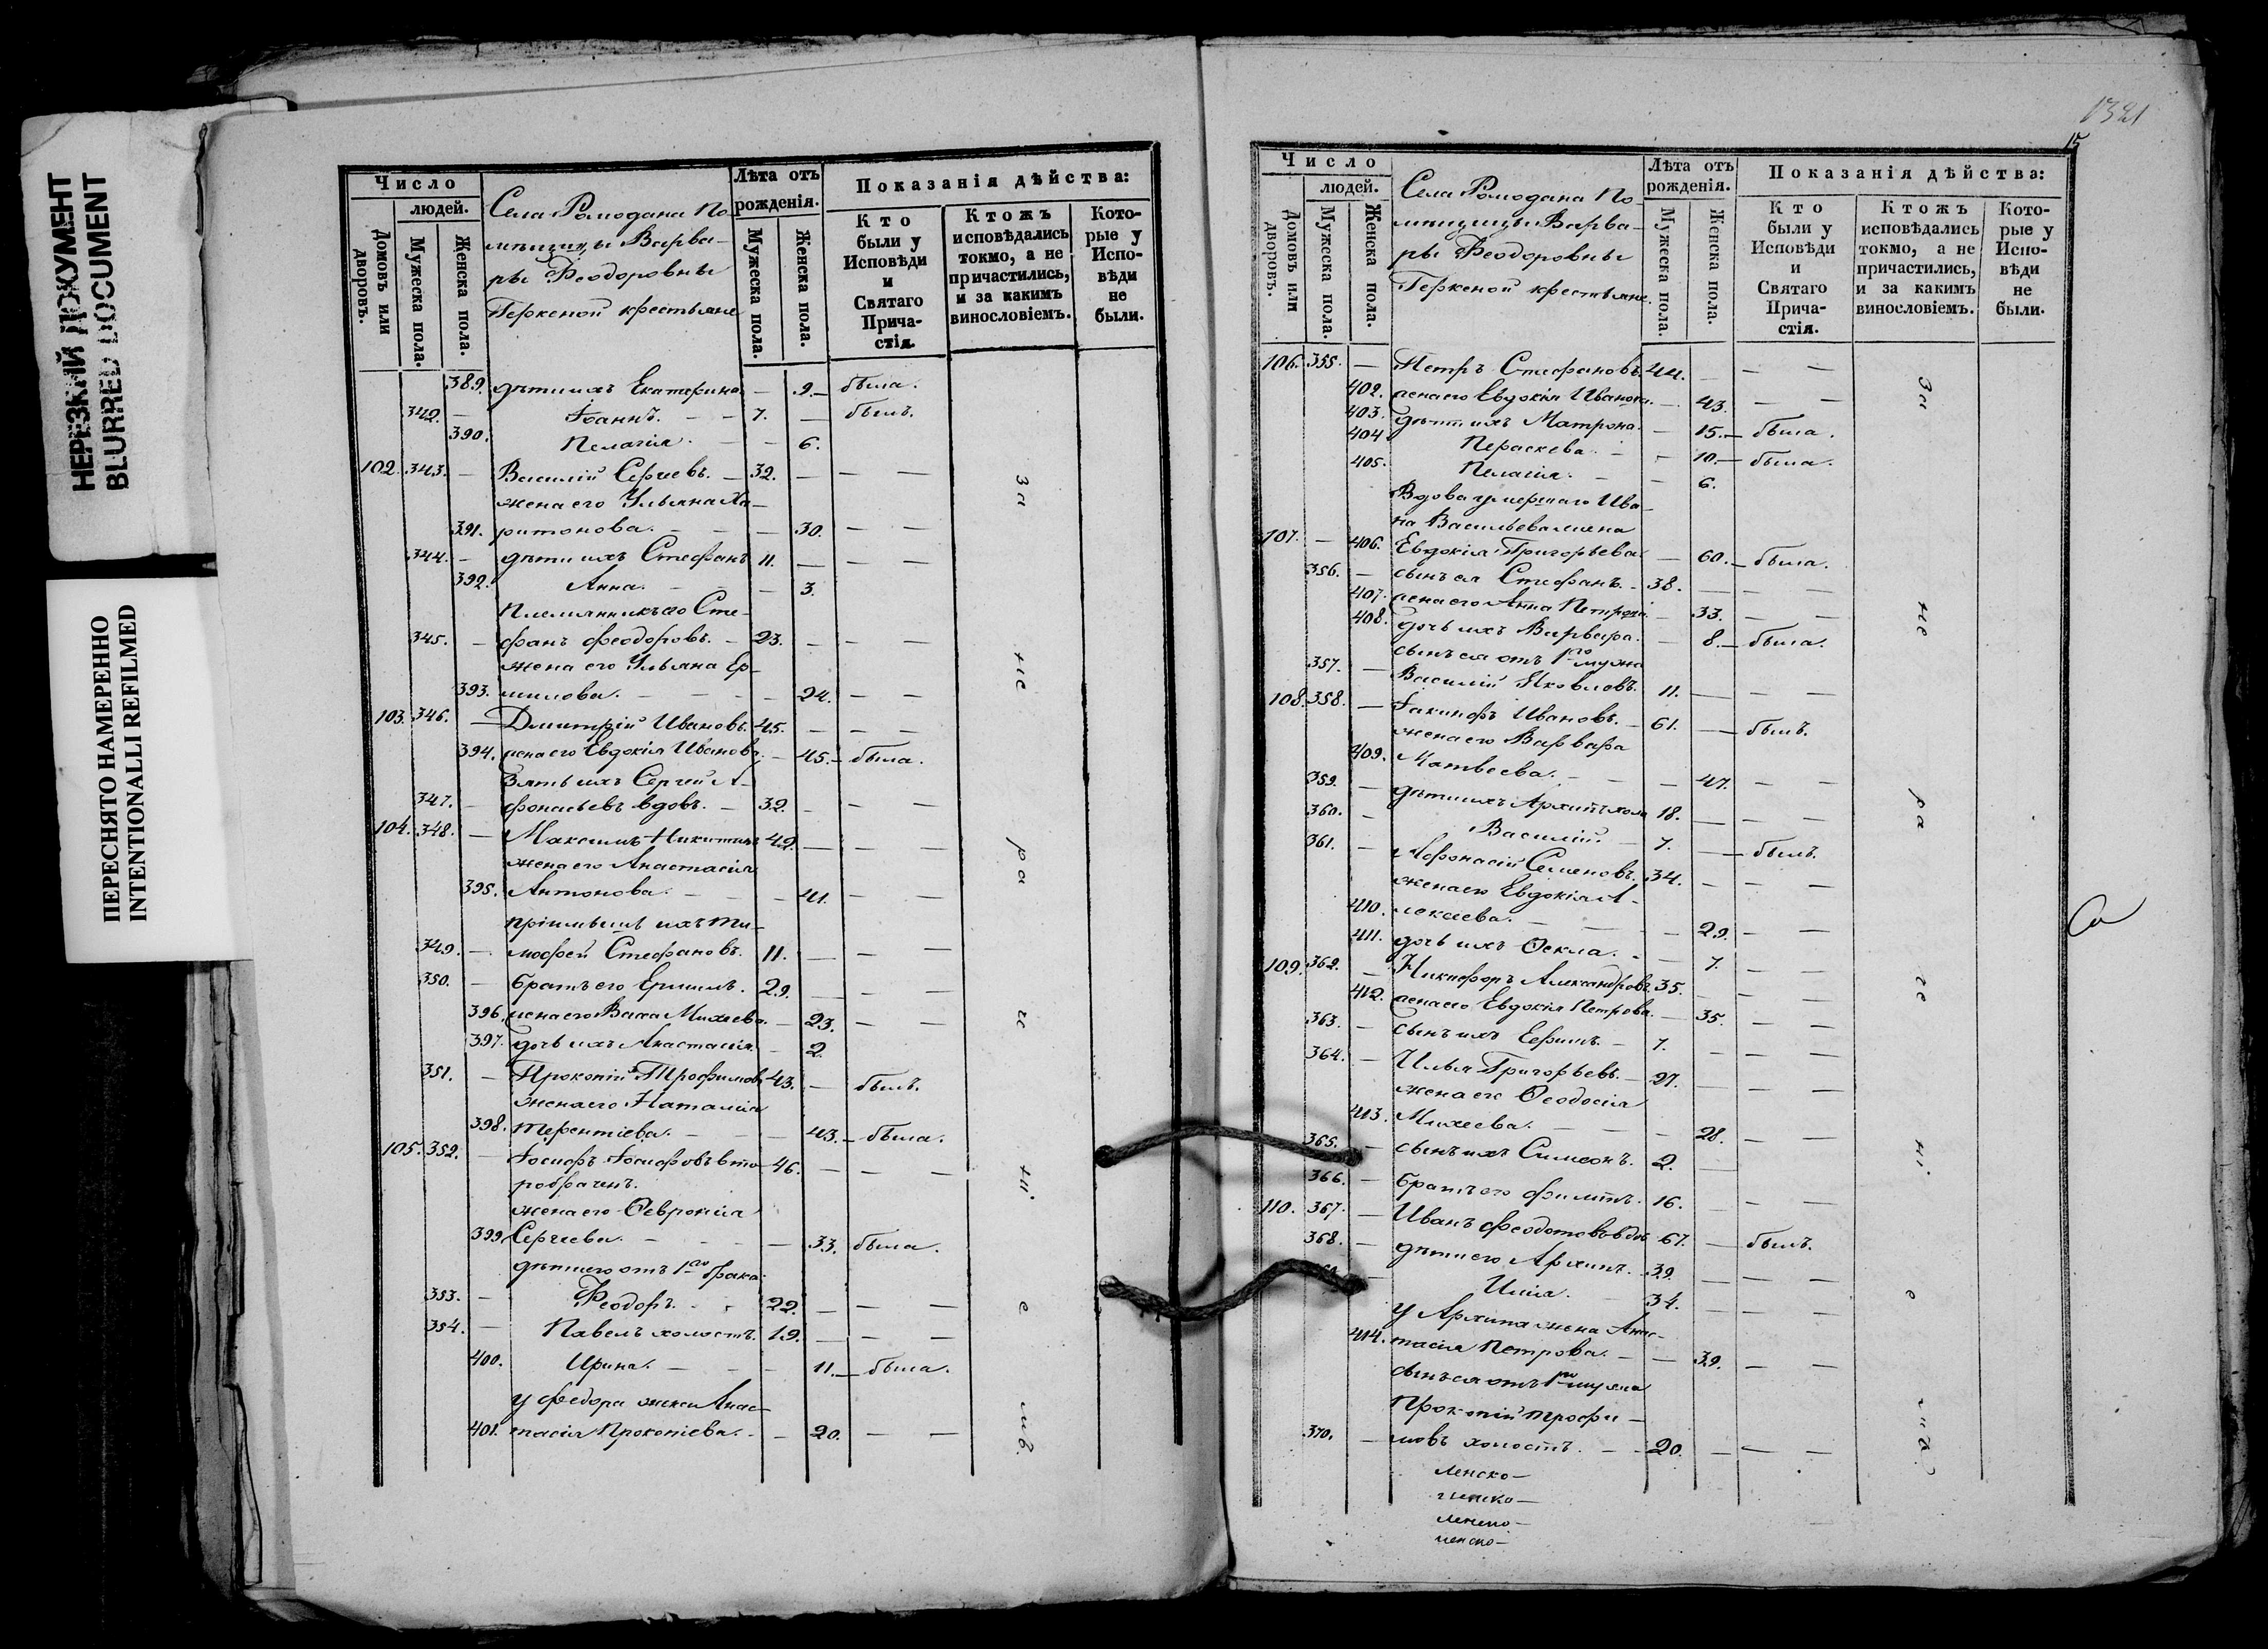 НЕРЕЗКИЙ ДОКУМЕНТ
BLURRED DOCUMENT
ПЕРЕСНЯТО НАМЕРЕННО
INTENTIONALLI REFILMED
Число
людей.
Домовъ или дворовъ.
Мужеска пола.
Женска пола.
Села Ромодана По-
мѣщицы Варва-
ры Феодоровны
Геркеной крестьяне
Лѣта отъ рожденія.
Мужеска пола.
Женска пола.
Показанія дѣйства:
Кто были у Исповѣди и Святаго Прича-стія.
Ктожъ исповѣдались токмо, а не причастились, и за какимъ винословіемъ.
Кото-рые у Испо-вѣди не были.
389. дѣти ихъ Екатерина — 9. — была.
342. — Іоаннъ. — — 7. — былъ.
390. Пелагія. — — 6.
102. 343. — Василій Сергеевъ. — 32. — — —
жена его Ульяна Ха-
391. ритонова. — — — 30. — —
344. — дѣти ихъ Стефанъ 11. — — —
392. Анна. — — 3.
Племянникъ его Сте-
345. — фанъ Феодоровъ. — 23. — — —
жена его Ульяна Ер-
393. милова. — — — 24. — —
103. 346. — Дмитрій Ивановъ. 45. — — —
394. жена его Евдокія Иванов. — 45. — была.
Зять ихъ Сергей А-
347. — фонасьевъ вдовъ. — 32. — — —
104. 348. — Максимъ Никитинъ 42. — — —
жена его Анастасія
395. Антонова. — — — 41. — —
пріимышъ ихъ Ти-
349. — мофей Стефановъ. 11. — — —
350. — братъ его Ермилъ. 29. — — —
396. жена его Васса Михеева. — 23. — —
397. дочь ихъ Анастасія. — 2.
351. — Прокопій Трофимовъ 43. — былъ.
жена его Наталія
398. Терентіева. — — — 43. — была.
105. 352. — Іосифъ Іосифовъ вто- 46. — — —
робрачен.
жена его Февронія
399. Сергеева. — — — 33. была.
дѣти его отъ 1го брака:
353. — Феодоръ. — 22. — — —
354. — Павелъ холостъ. 19. — — —
400. Ирина. — — — 11. — была.
у Федора жена Анас-
401. тасія Прокопіева. — — 20. — —
за
не
ра
че
ні
е
мъ.
1321
15
Число
людей.
Домовъ или дворовъ.
Мужеска пола.
Женска пола.
Села Ромодана По-
мѣщицы Варва-
ры Феодоровны
Геркеной крестьяне.
Лѣта отъ рожденія.
Мужеска пола.
Женска пола.
Показанія дѣйства:
Кто были у Исповѣди и Святаго Прича-стія.
Ктожъ исповѣдались токмо, а не причастились, и за какимъ винословіемъ.
Кото-рые у Испо-вѣди не были.
106. 355. — Петръ Стефановъ. 44. — — —
402. жена его Евдокія Иванова. — 43. — —
403. дѣти ихъ Матрона. — 15. — была.
404. Пераскева. — — 10. — была.
405. Пелагія. — — 6.
Вдова умершаго Ива-
на Васильева жена
107. — 406. Евдокія Григорьева. — 60. — была.
356. — сынъ ея Стефанъ. — 38. — — —
407. жена его Анна Петрова. — 33. — —
408. дочь ихъ Варвара. — 8. — была.
сынъ ея отъ 1го мужа
357. — Василій Яковлевъ. 11. — — —
108. 358. — Іакинфъ Ивановъ. — 61. — былъ.
жена его Варвара
409. Матвеева. — — — 47. — —
359. — дѣти ихъ Архипъ хол. 18. — — —
360. — Василій. — 7. — былъ.
361. — Афонасій Семеновъ. 34. — — —
жена его Евдокія А-
410. лексеева. — — 29. — —
411. дочь ихъ Фекла. — — 7. — —
109. 362. — Никифоръ Александровъ. 35. — — —
412. жена его Евдокія Петрова. — 35. — —
363. — сынъ ихъ Ефимъ. — 7. — — —
364. — Илья Григорьевъ. — 27. — — —
жена его Феодосія
413. Михеева. — — — 28. — —
365. — сынъ ихъ Симеонъ. 2. —
366. — братъ его Филипъ. 16. — — —
110. 367. — Иванъ Феодотовъ вдов. 67. — былъ.
368. — дѣти его Архипъ. 39. — — —
Илія. — 34. — — —
у Архипа жена Анас-
414. тасія Петрова. — — 39. — —
сынъ ея отъ 1го мужа
Прокопій Трофи-
370. — мовъ холостъ. — — 20. — — —
за
не
ра
че
ні
е
мъ.